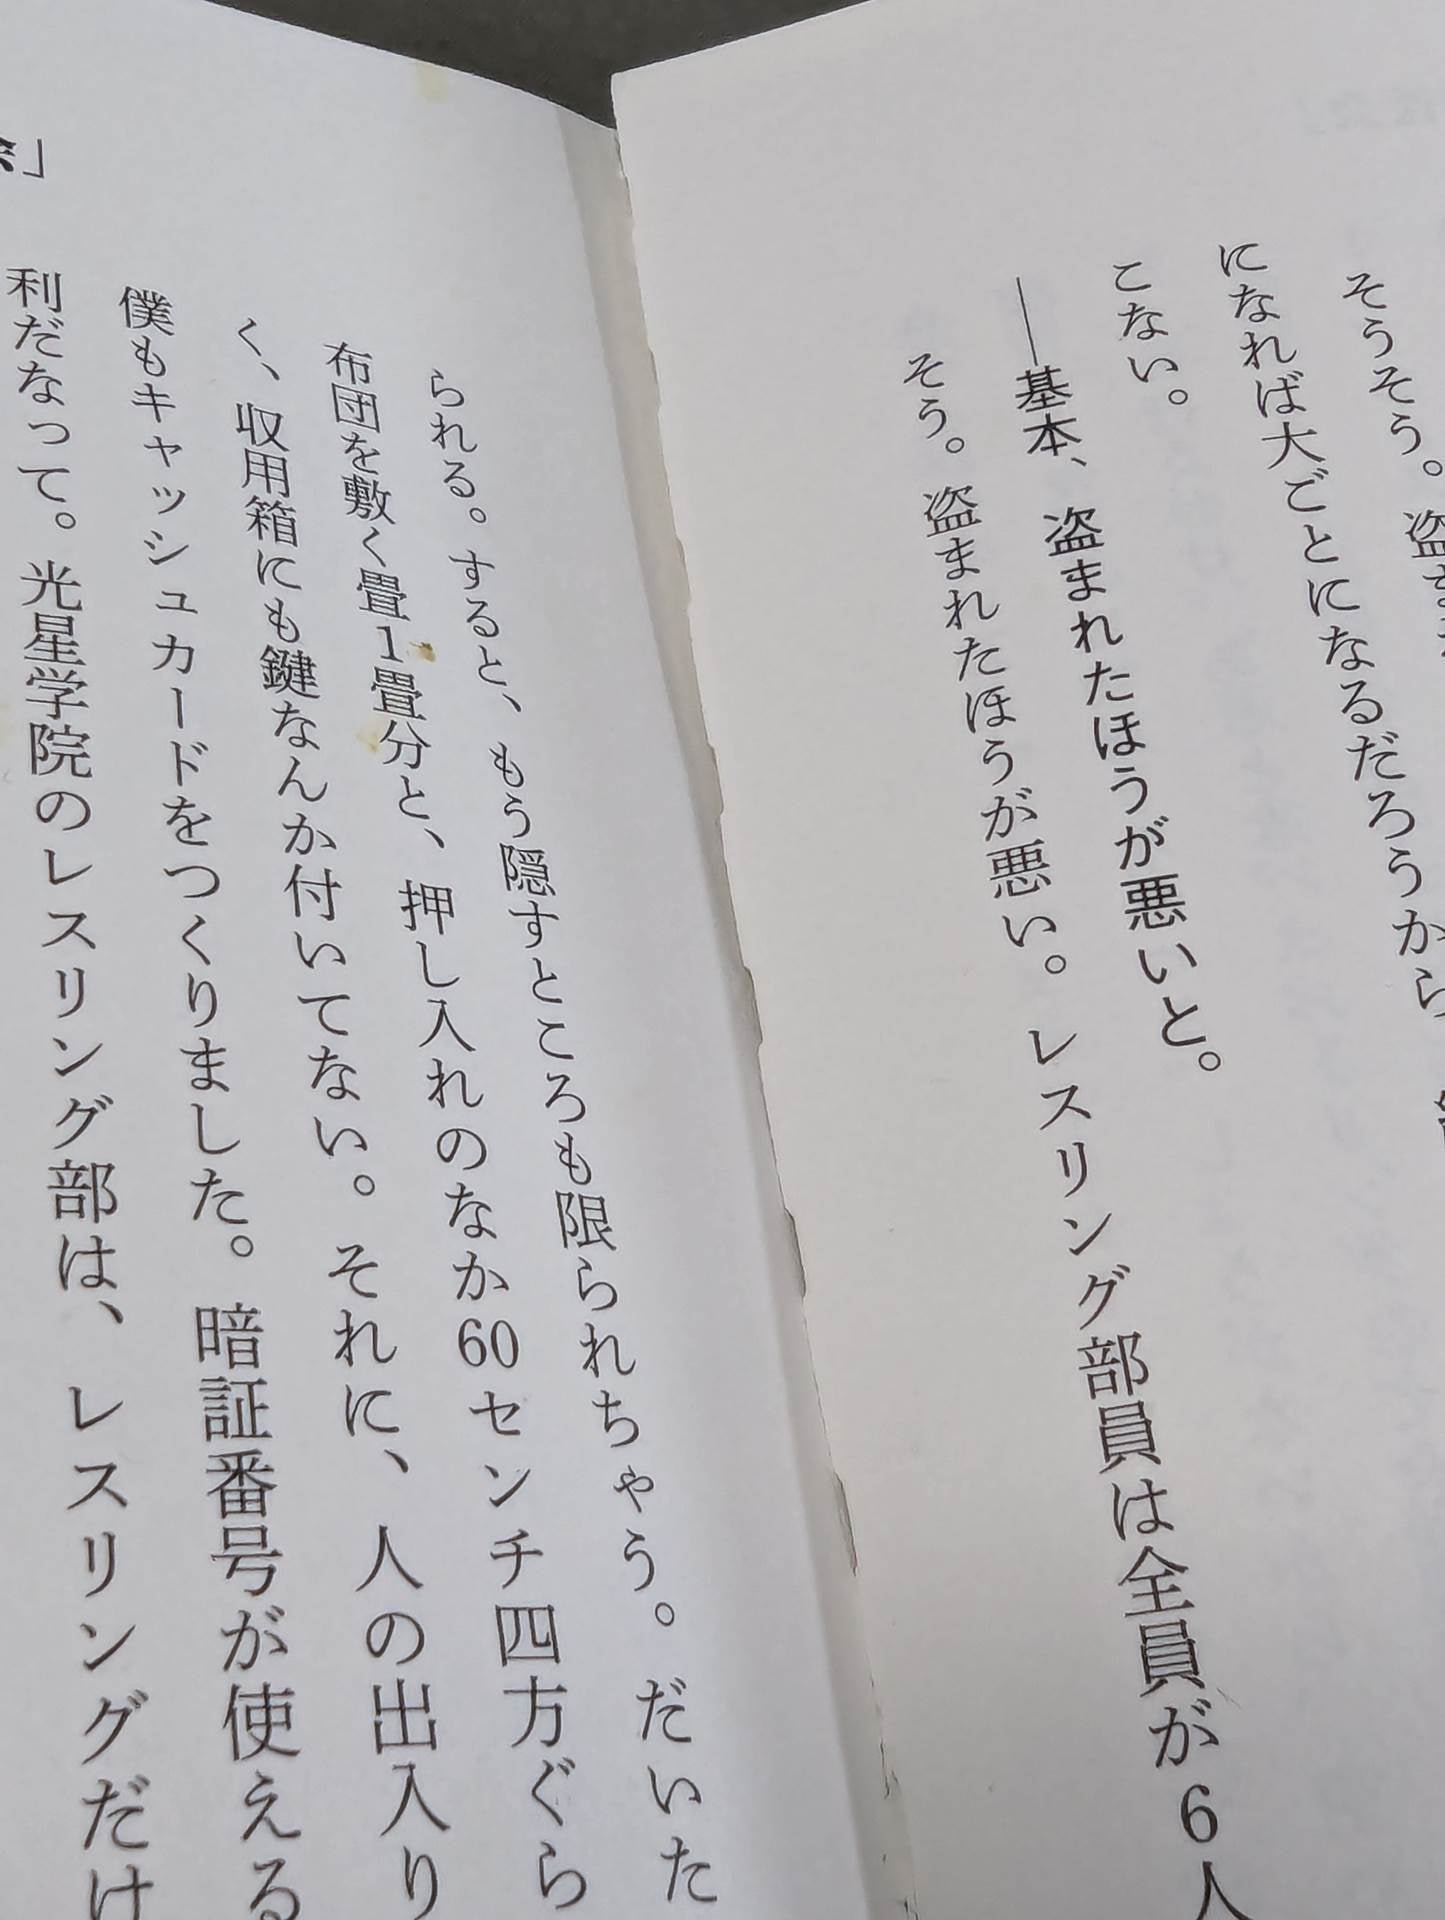 そうそう。
になれば大ごとになるだろうから
こない。
――基本、盗まれたほうが悪いと。
そう。盗まれたほうが悪い。レスリング部員は全員が6人
られる。すると、もう隠すところも限られちゃう。だいた
布団を敷く畳1畳分と、押し入れのなか60センチ四方ぐら
く、収用箱にも鍵なんか付いてない。それに、人の出入り
僕もキャッシュカードをつくりました。暗証番号が使える
利だなって。光星学院のレスリング部は、レスリングだけ
」